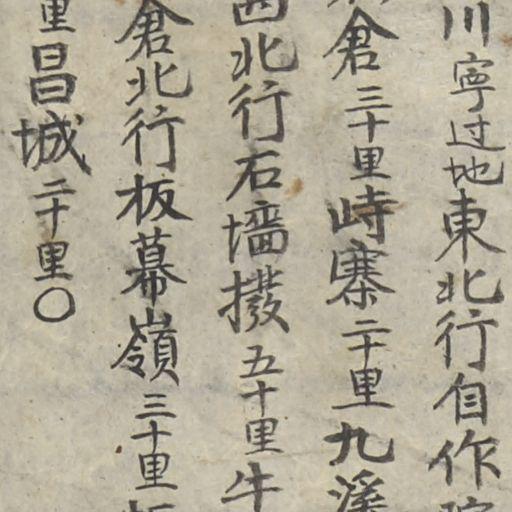 川寧过地東北行自作
倉三十里峙寨二十里九溪
北行石墻撥五十里牛
倉北行板幕嶺三十里
里昌城二十里〇